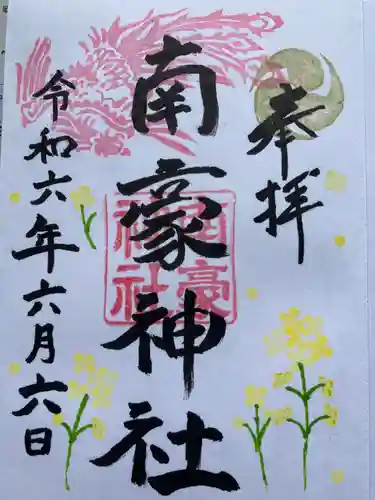 奉拝
南豪神社
令和六年六月六日
南豪
神社